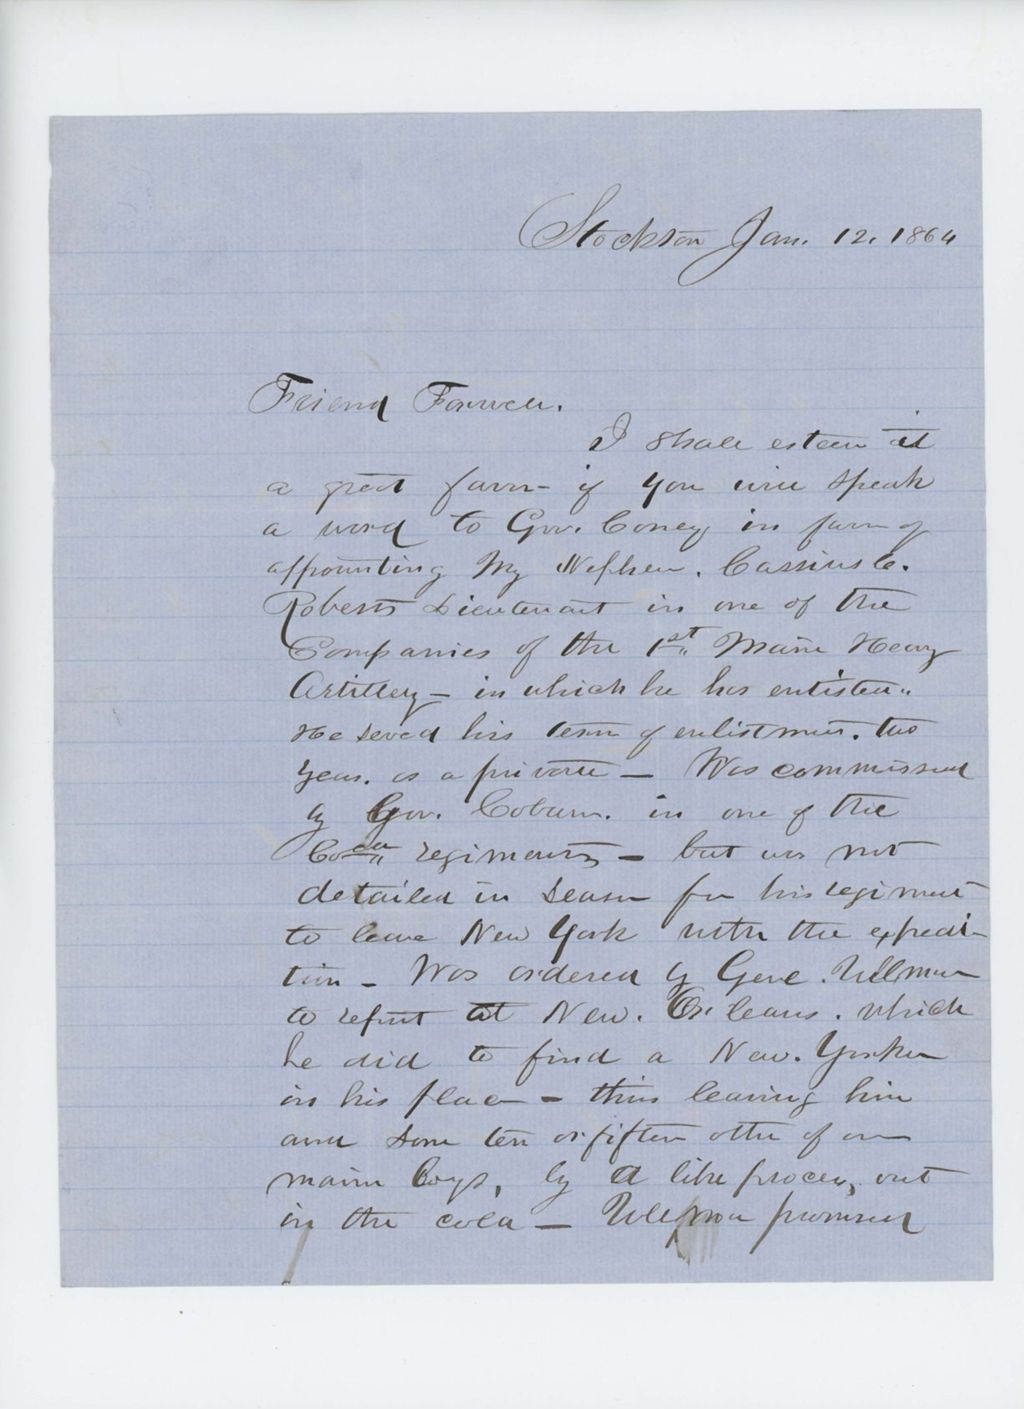 Stockton Jan. 12, 1864
Friend Farwell.
I shall esteem it
a great favor - if you will speak
a word to Gov. Coney in favor of
appointing My Nephew. Cassius C.
Roberts Lieutenant in one of the
Companies of the 1st Maine Heavy
Artillery - in which he has enlisted.
He served his term of enlistment. two
years. as a private - Was commissioned
by Gov. Coburn. in one of the
regiments - but was not
detailed in season for his regiment
to leave New York with the expedi-
tion - Was ordered by Genl. Ullman
to report at New. Orleans. which
he did to find a New. Yorker
in his place - thus leaving him
and some ten or fifteen other of our
maine boys, by a like process, out
in the cold - Ullman promised